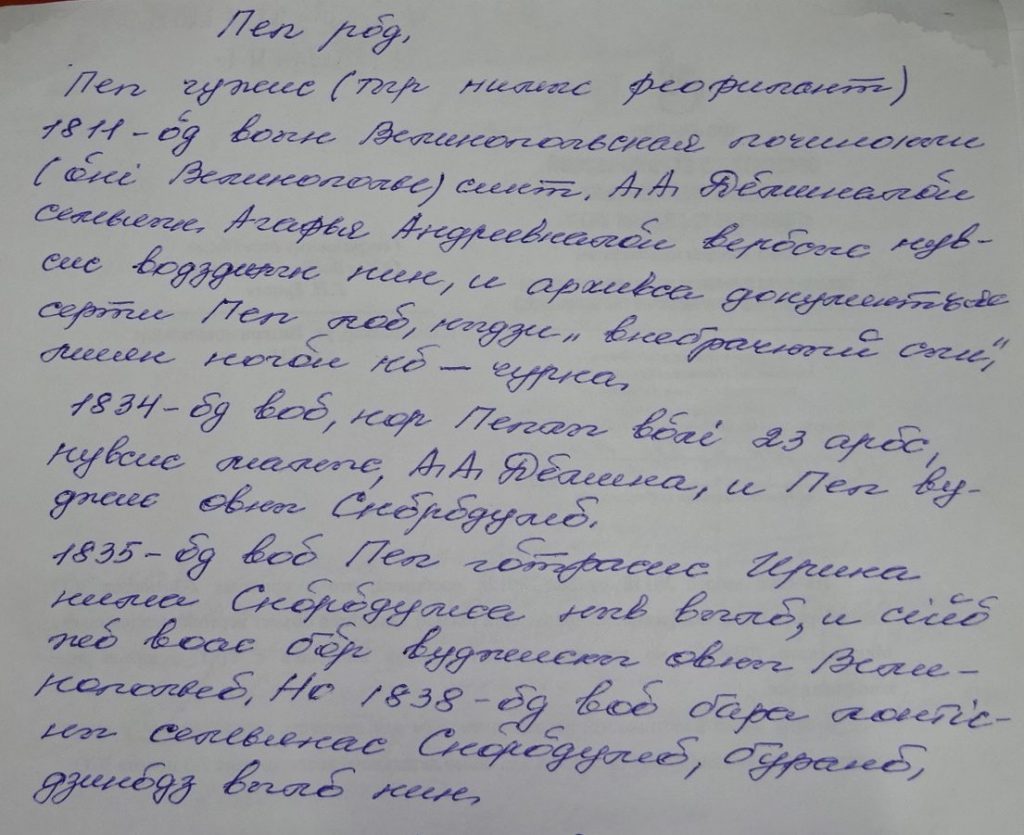 Пеп рӧд.
Пеп чужис (тыр нимыс Феофилакт)
1811-ӧд воын Великопольская починокын
(ӧні Великополье) сикт. А.А. Дёминалӧн
семьяын. Агафья Андреевналӧн верӧсыс кув-
сис водздзык нин, и архивса документъяс
серти Пеп лоӧ, кыдзи „внебрачный сын",
миян ногӧн кӧ – чурка.
1834-ӧд воӧ, кор Пеплы вӧлі 23 арӧс,
кувсис мамыс, А.А. Дёмина, и Пеп ву-
джис овны Скӧрӧдумӧ.
1835-ӧд воӧ Пеп гӧтрасис Ирина
нима Скӧрӧдумса ныв вылӧ, и сійӧ
жӧ воас бӧр вуджисны овны Вели-
копольеӧ. Но 1838-ӧд воӧ бара локтіс-
ны семьянас Скӧрӧдумӧ, буракӧ,
дзикӧдз вылӧ нин.